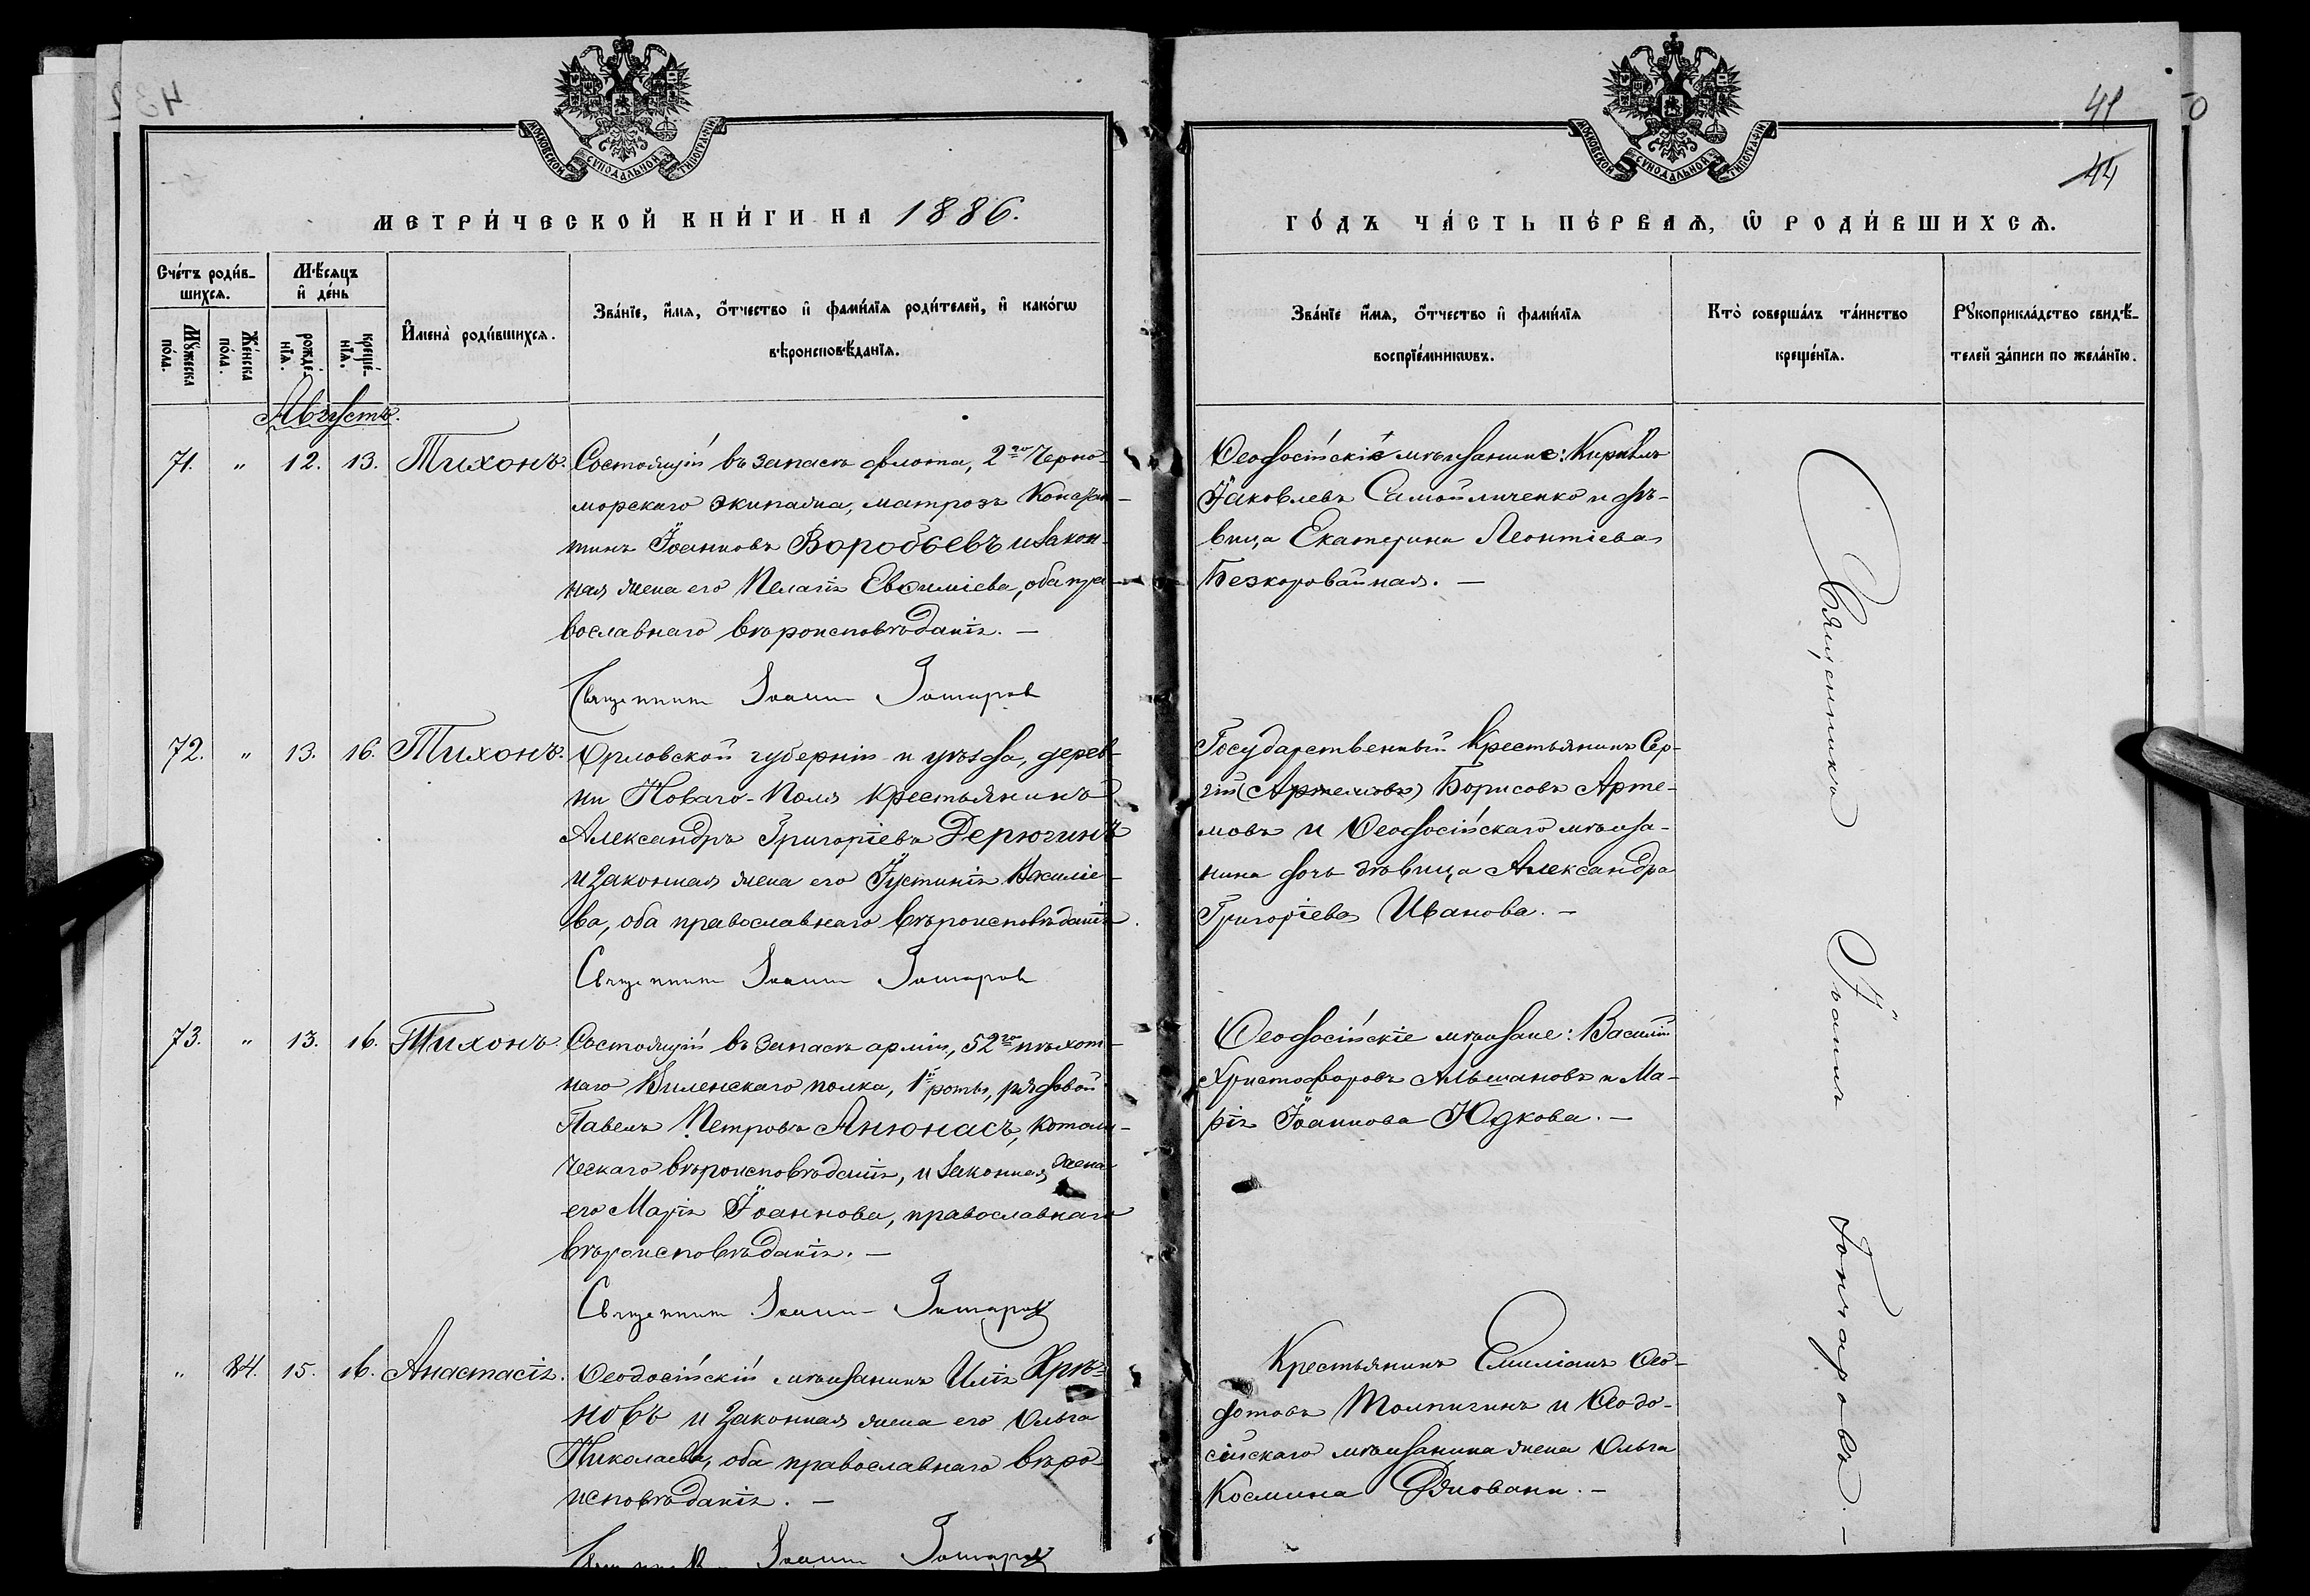 МОСКОВСКОЙ СѴНОДАЛЬНОЙ ТИПОГРАФІИ
МЕТРИ́ЧЕСКОЙ КНИ́ГИ НА 1886.
Сче́тъ роди́в-
шихся.
Мѣ́сяцъ
и҆ де́нь
Мꙋ́жеска
по́ла.
Же́нска
по́ла.
рожде́-
нїя.
креще́-
нїя.
И҆мена̀ роди́вшихся.
Зва́нїе, и҆́мя, ѻ҆́тчество и҆ фами́лїя роди́телей, и҆ како́гѡ
вѣроисповѣ́данїя.
Августъ.
71. " 12. 13. Тихонъ. Состоящій въ запасѣ флота, 2го Черно-
морскаго экипажа, матрозъ Констан-
тинъ Іоанновъ Воробьевъ и закон-
ная жена его Пелагія Евѳиміева, оба пра-
вославнаго вѣроисповѣданія. —
Священник Иоанн Гончаров
72. " 13. 16. Тихонъ. Орловской губерніи и уѣзда, дерев-
ни Новаго-Поля крестьянинъ
Александръ Григоріевъ Дерюгинъ
и законная жена его Іустинія Василіе-
ва, оба православнаго вѣроисповѣданія.
Священник Иоанн Гончаров
73. " 13. 16. Тихонъ. Состоящій въ запасѣ арміи, 52го пѣхот-
наго Виленскаго полка, 1й роты, рядовой
Павелъ Петровъ Анюнасъ, католи-
ческаго вѣроисповѣданія, и законная жена
его Марія Іоаннова, православнаго
вѣроисповѣданія. —
Священник Иоанн Гончаров
" 84. 15. 16. Анастасія. Ѳеодосійскій мѣщанинъ Илія Хрѣ-
новъ и законная жена его Ольга
Николаева, оба православнаго вѣро-
исповѣданія. —
Иоанн Гончаров
41
44
МОСКОВСКОЙ СѴНОДАЛЬНОЙ ТИПОГРАФІИ
ГО́ДЪ ЧА́СТЬ ПЕ́РВАЯ, Ѡ҆ РОДИ́ВШИХСЯ.
Зва́нїе и҆́мя, ѻ҆́тчество и҆ фами́лїя
воспрїе́мникѡвъ.
Кто̀ соверша́лъ та́инство
креще́нїя.
Рꙋкоприкла́дство свидѣ́-
телей за́писи по жела́нїю.
Ѳеодосійскіе мѣщане: Кириллъ
Іаковлевъ Самойличенко и дѣ-
вица Екатерина Леонтіева
Безкоровайная. —
Государственный крестьянинъ Сер-
гій (Артемовъ) Борисовъ Арте-
мовъ и Ѳеодосійскаго мѣща-
нина дочь дѣвица Александра
Григоріева Иванова. —
Ѳеодосійскіе мѣщане: Василій
Христофоровъ Альшановъ и Ма-
рія Іоаннова Юдкова. —
Крестьянинъ Емиліанъ Ѳео-
дотовъ Толпигинъ и Ѳеодо-
сійскаго мѣщанина жена Ольга
Космина Дяловани. —
Священникъ Іоаннъ Гончаровъ. —